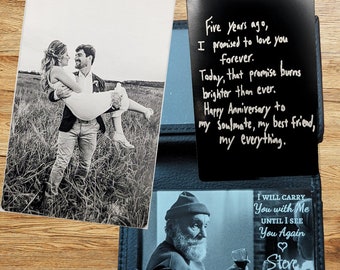 Five years ago,
I promised to love you
forever.
Today, that promise burns
brighter than ever.
Happy Anniversary to
my soulmate, my best friend,
my everything.
I WILL CARRY
You with Me
UNTIL I SEE
You Again
Steve